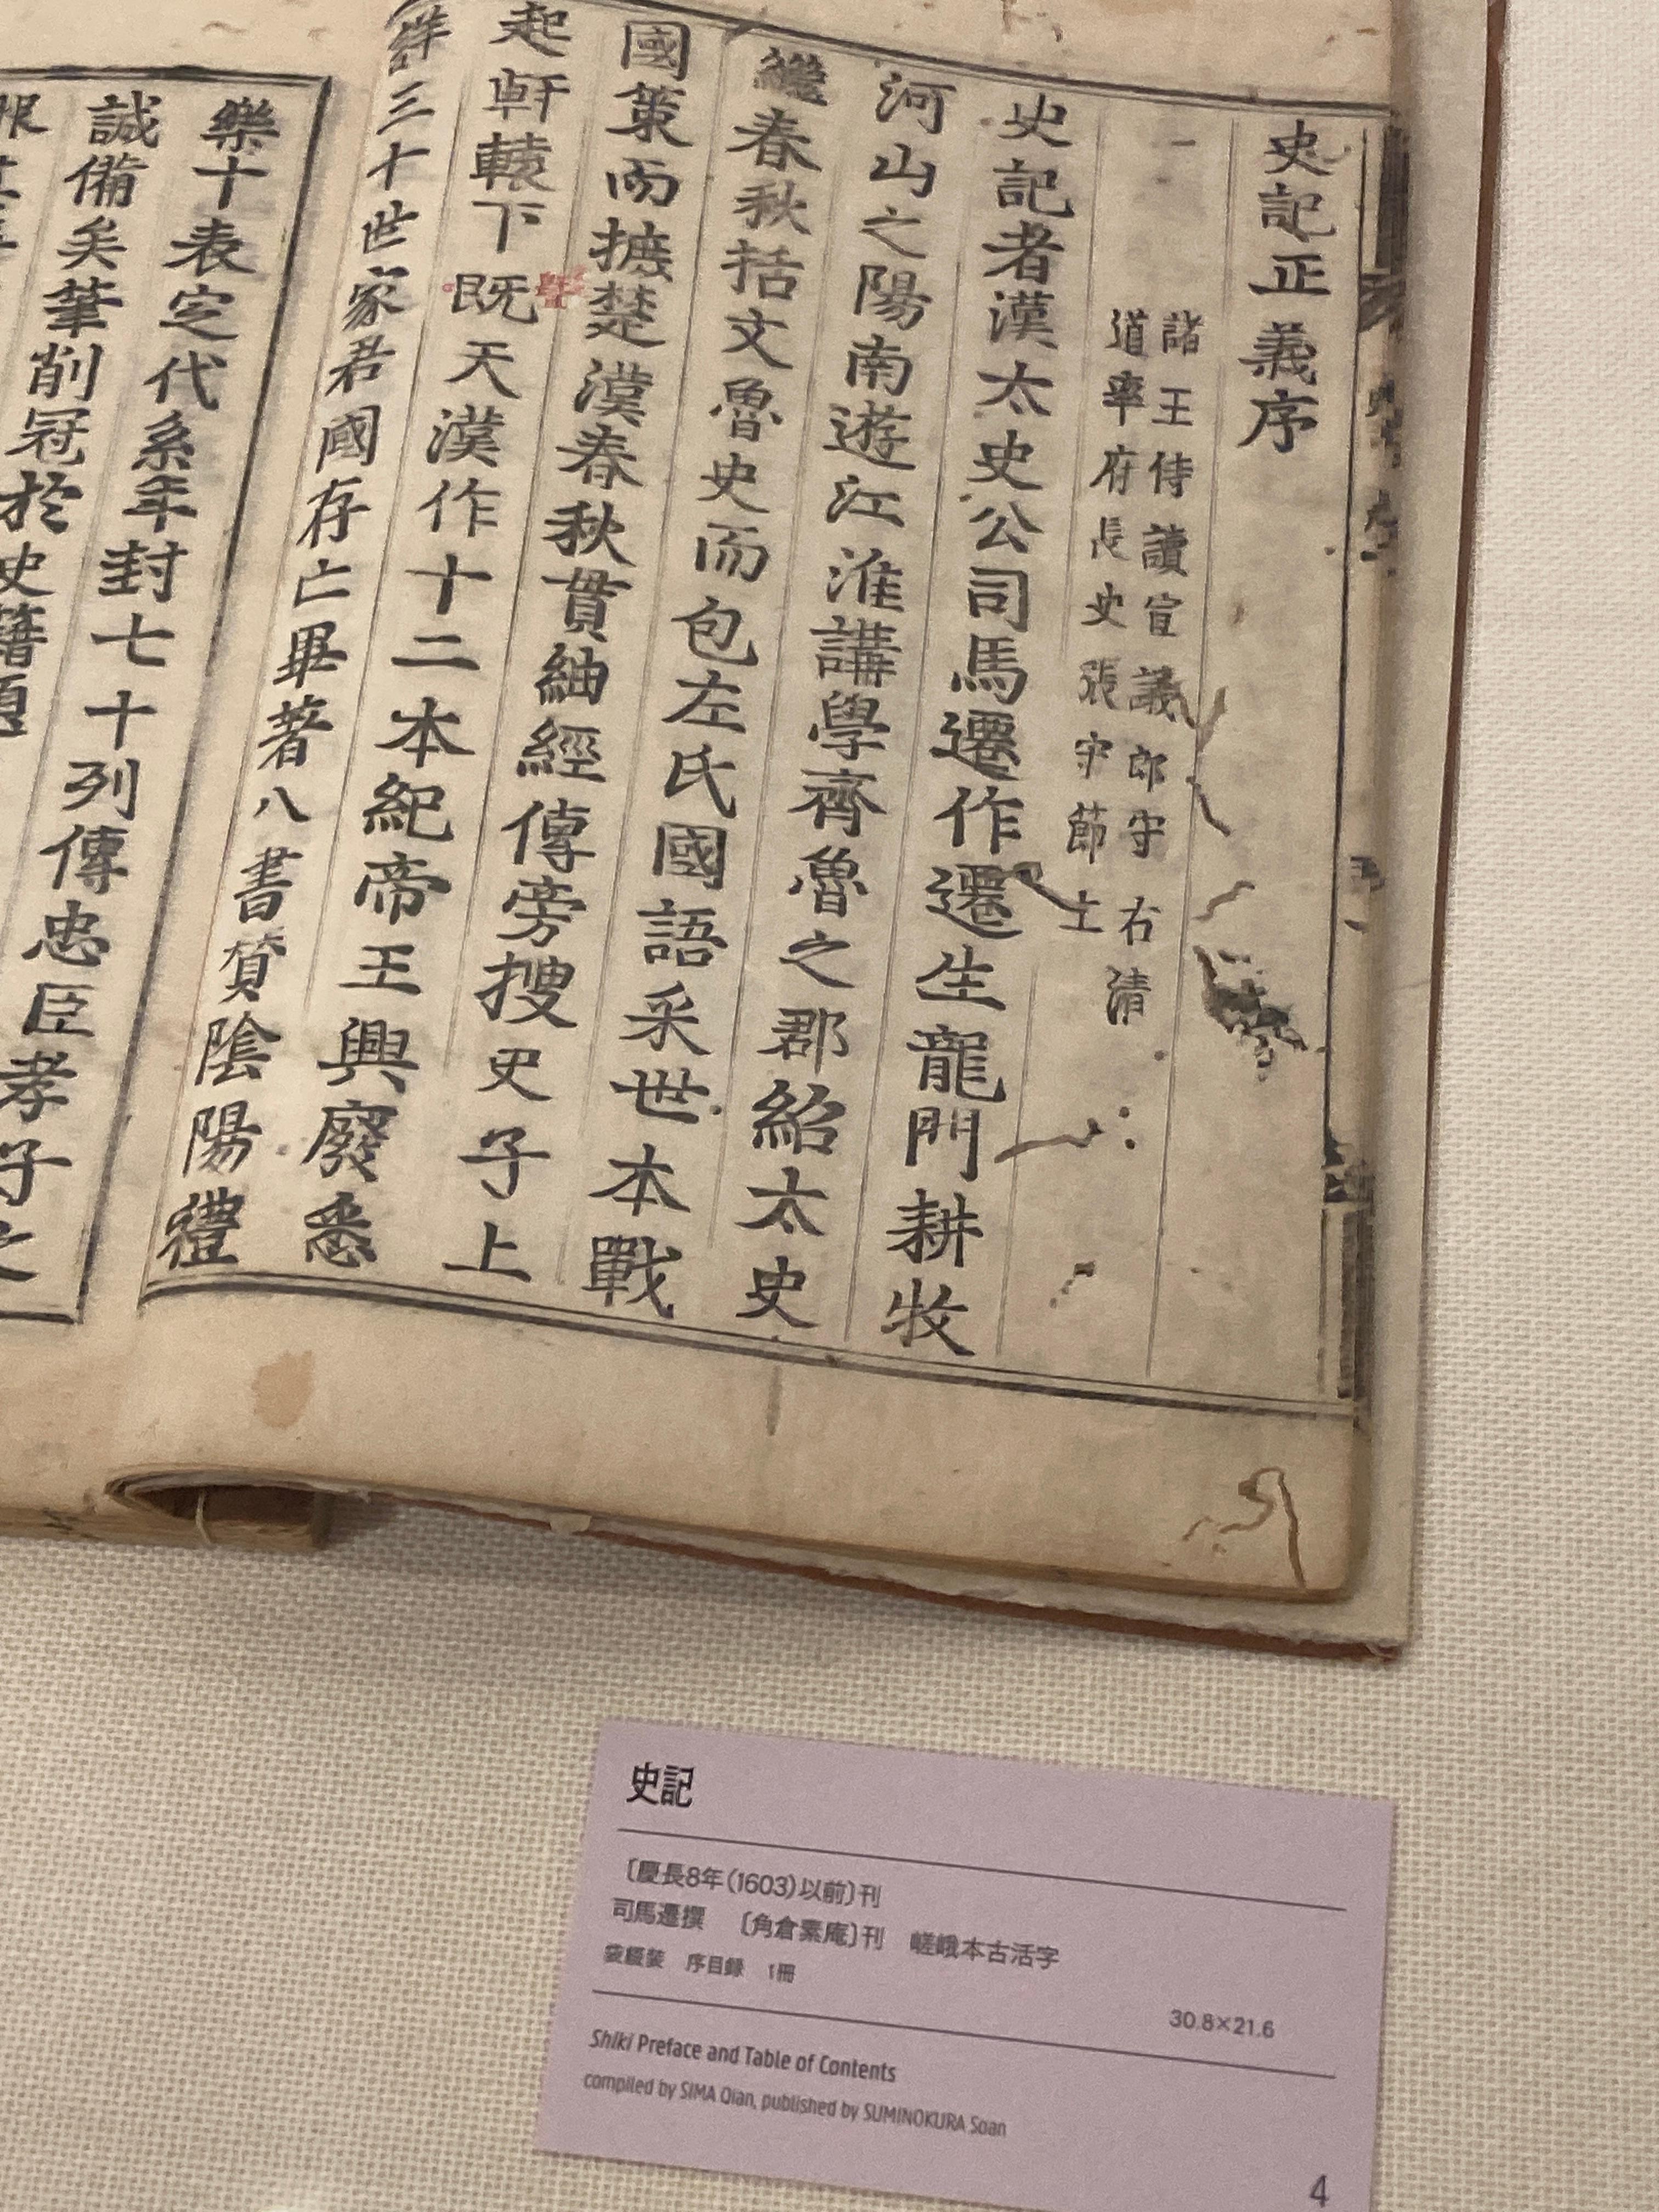 史記正義序
諸王侍讀宣議郎守右清
道率府長史張守節上
史記者漢太史公司馬遷作遷生龍門耕牧
河山之陽南遊江淮講學齊魯之郡紹太史
繼春秋括文魯史而包左氏國語采世本戰
國策而摭楚漢春秋貫紬經傳旁搜史子上
起軒轅下既天漢作十二本紀帝王興廢悉
詳三十世家君國存亡畢著八書贊陰陽禮
樂十表定代系年封七十列傳忠臣孝子之
誠備矣筆削冠於史籍題
史記
〔慶長8年(1603)以前〕刊
司馬遷撰 〔角倉素庵〕刊 嵯峨本古活字
袋綴装 序目録 1冊
30.8×21.6
Shiki Preface and Table of Contents
compiled by SIMA Qian, published by SUMINOKURA Soan
4